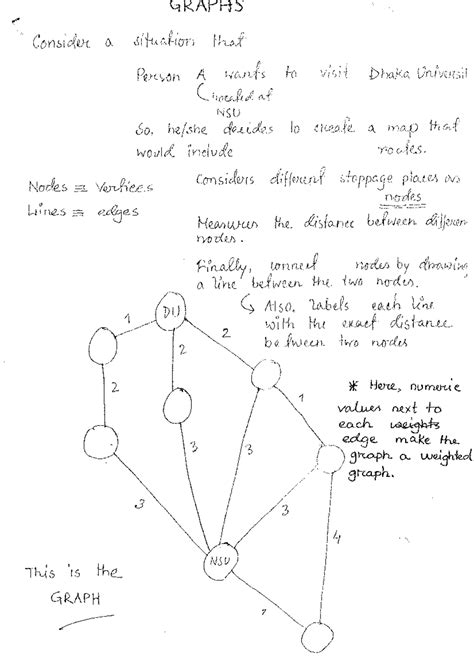 GRAPHS
Consider a situation that
Person A wants to visit Dhaka Universit
located at
NSU
So, he/she decides to create a map that
would include routes.
Nodes ≡ Vertices
Lines ≡ edges
Considers different stoppage places as
nodes
Measures the distance between differen
nodes.
Finally, connect nodes by drawing
a line between the two nodes.
Also, labels each line
with the exact distance
between two nodes
DU
1
2
2
2
1
3
3
3
3
4
NSU
* Here, numeric
values next to
each weights
edge make the
graph a weighted
graph.
This is the
GRAPH